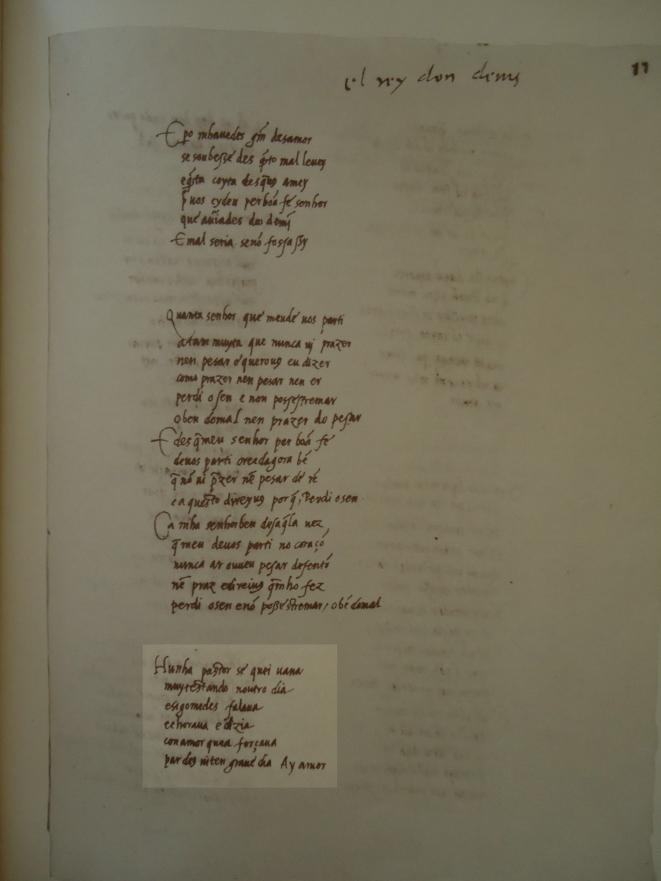 el rey don denis
17
E po mhauedes grã desamor
se soubessẽ des q̃sto mal leuey
e q̃sta coyta des q̃uꝯ amey
uos cydeu per boã fe senhor
que auiades
E mal seria senõ fossassy
Quanta senhor que meude uos parti
atam muyta que nunca ui prazer
nen pesar e querouꝯ eu dizer
como prazer nen pesar nen er
perdi o sen e non possestremar
o ben do mal nen prazer do pesar
E des q̃meu senhor per boã fe
deuos parti creedagora bẽ
q̃ nõ ui p̃zer nẽ pesar de rẽ
e a questo direyuꝯ por q̃ Perdi o sen
Ca mha senhor ben desaq̃la uez
q̃meu deuos parti no coraçõ
nunca ar ouueu pesar desentõ
nẽ praz e direiuꝯ q̃mho fez
perdi o sen enõ possestremar / o bẽ do mal
Hunha pastor se quei uaua
muytestando noutro dia
e sigo medes falaua
e choraua e dizia
con amor quea forçaua
par des uiten graue dia Ay amor